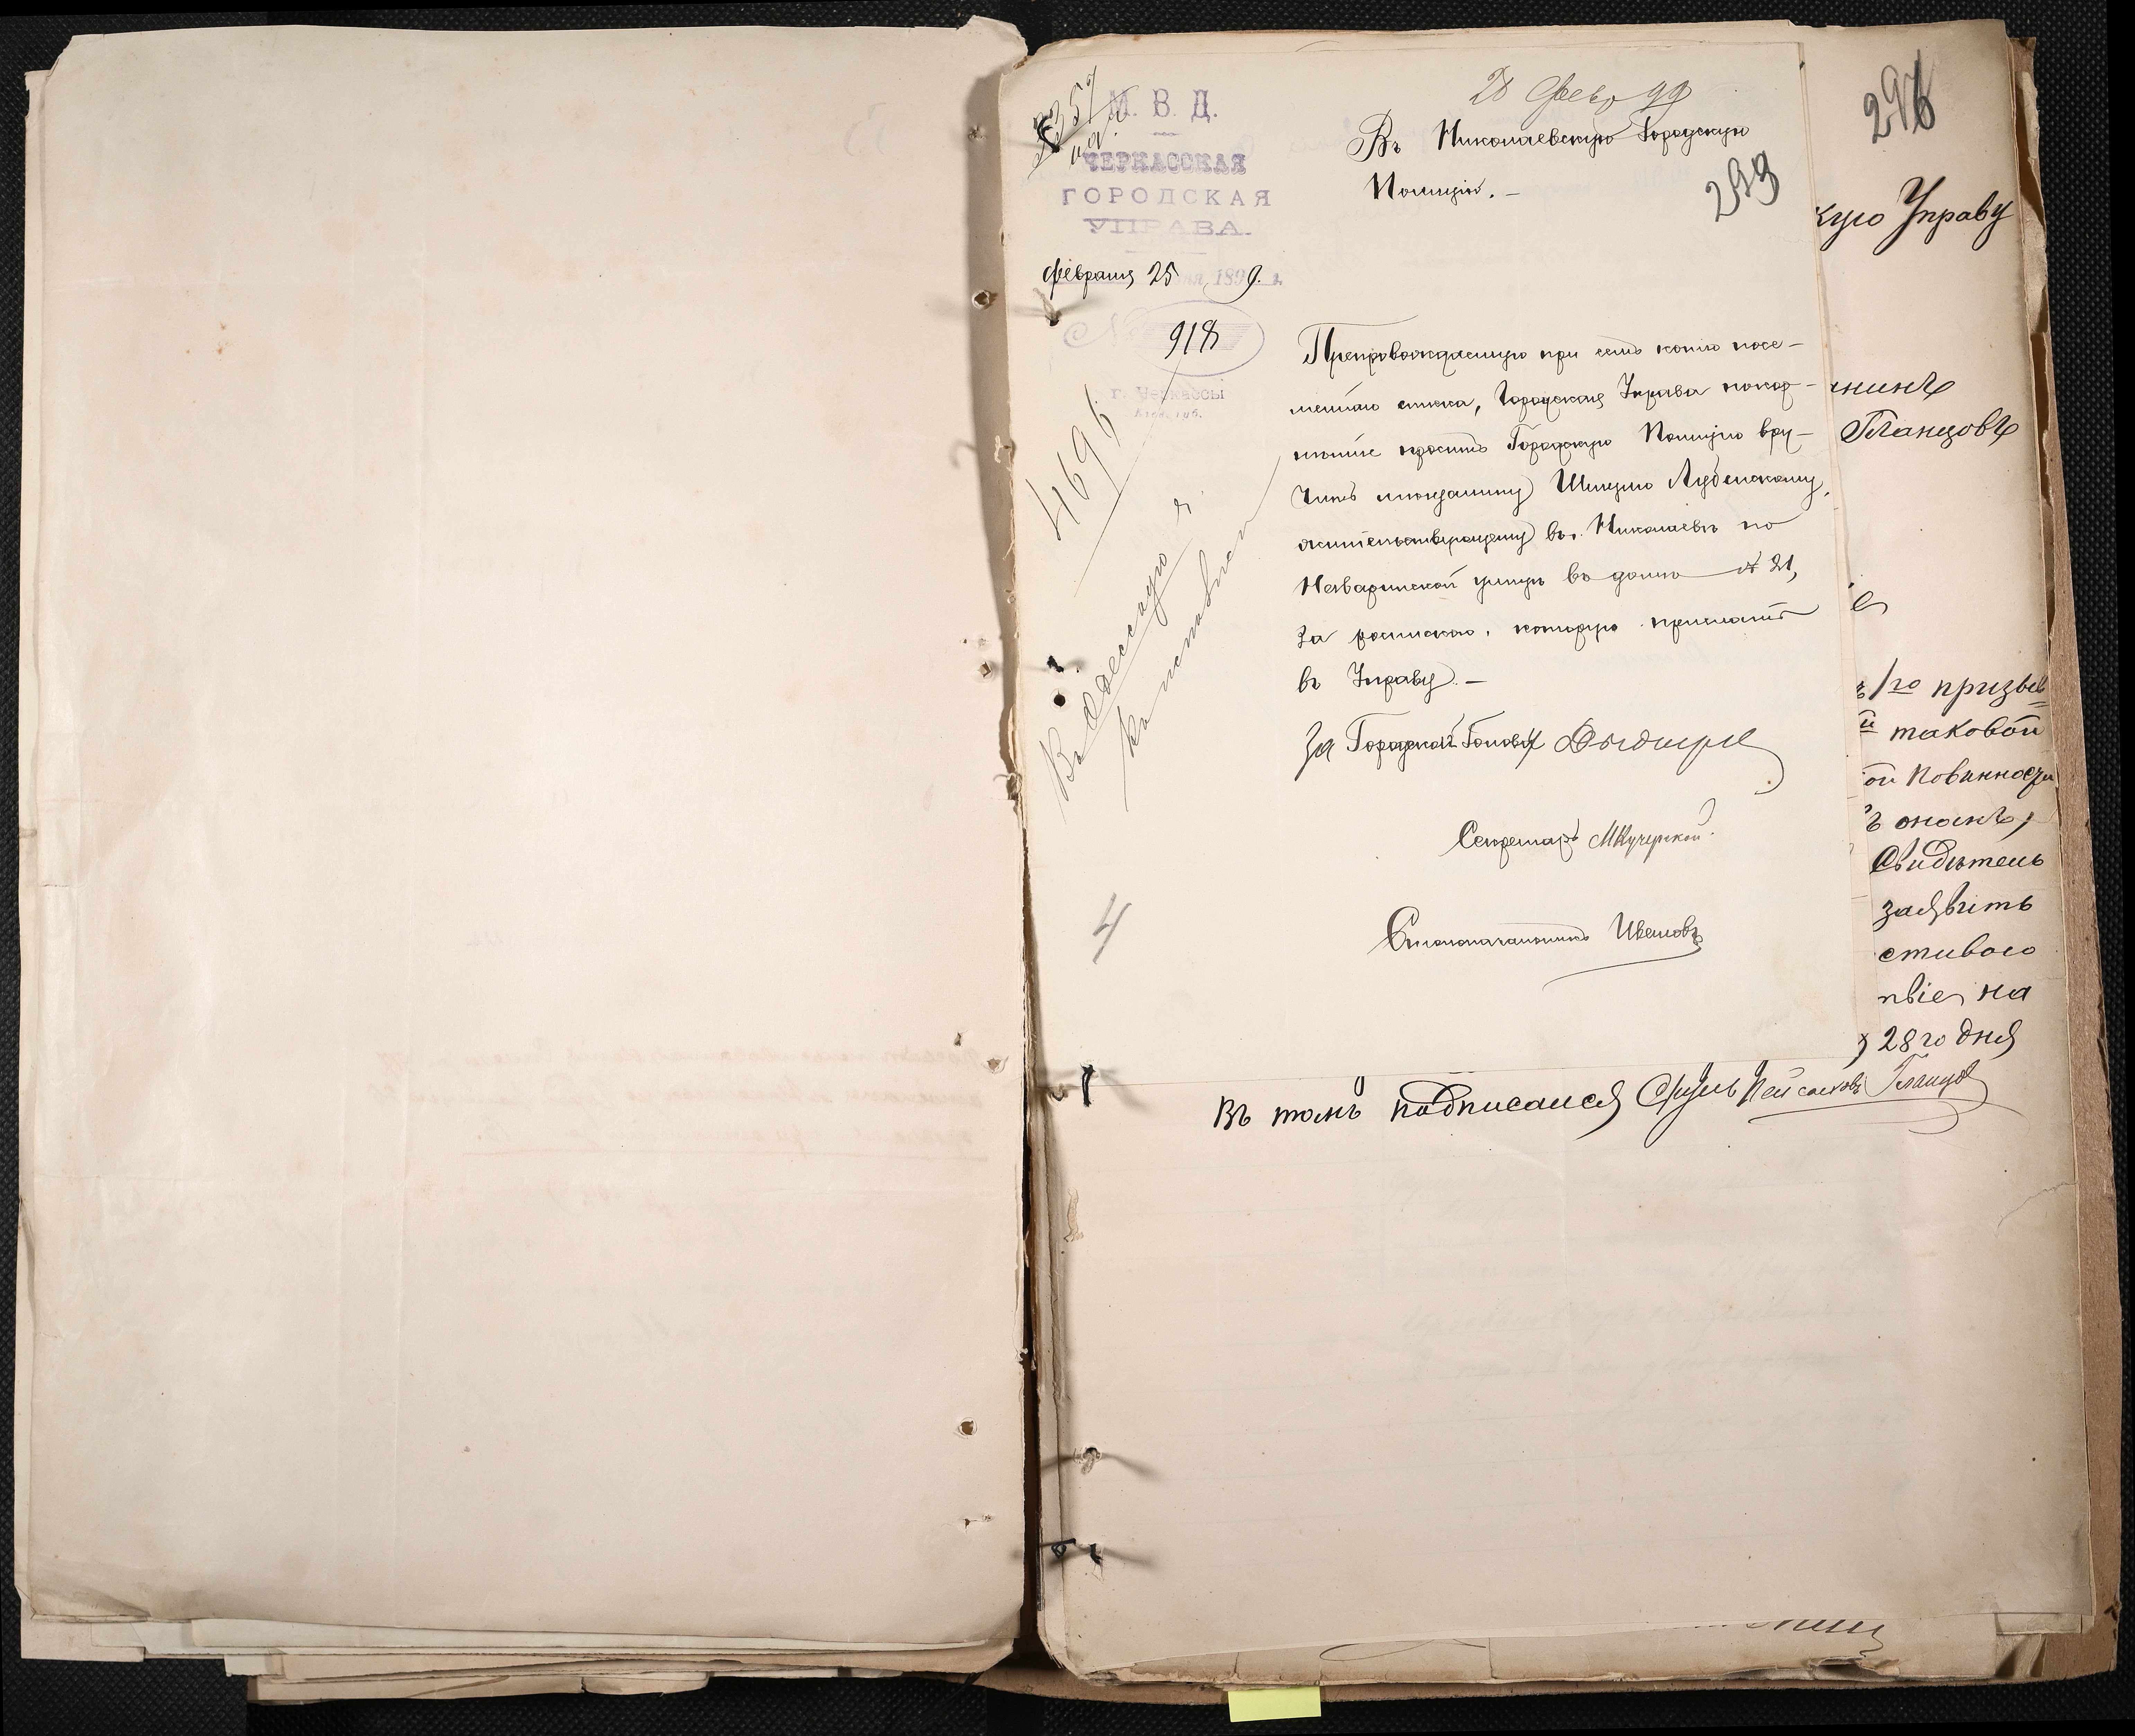 28 Февр 99
М. В. Д.
ЧЕРКАССКАЯ
ГОРОДСКАЯ
УПРАВА.
Февраля 25 дня 1899 г.
№ 918
г. Черкассы
Кіев. губ.
4696
4
Въ Николаевскую Городскую
Полицію. —
293
Препровождаемую при семъ копію посе-
мейнаго списка, Городская Управа покор-
нѣйше проситъ Городскую Полицію вру-
чить мѣщанину Шмулю Лубенскому,
жительствующему въ г. Николаевѣ по
Наваринской улицѣ въ домѣ № 21,
за росписко͏ю, которую прислать
въ Управу. —
За Городской Голова
Секретарь М Кучерской.
Столоначальникъ Ивановъ
296
кую Управу
анинъ
Гланцовъ
1го призыв
таковой
ой повинности
ъ ономъ,
Свидѣтель
заявить
стивого
твіе на
28го дня
Въ томъ подписался Сруль Пейсаховъ Гланцов